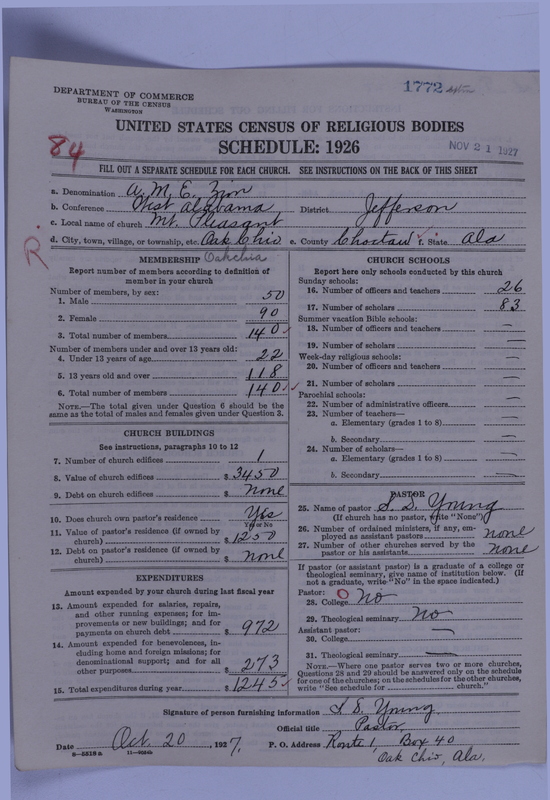 1772
DEPARTMENT OF COMMERCE
BUREAU OF THE CENSUS
WASHINGTON
UNITED STATES CENSUS OF RELIGIOUS BODIES
SCHEDULE: 1926
NOV 21 1927
84
FILL OUT A SEPARATE SCHEDULE FOR EACH CHURCH. SEE INSTRUCTIONS ON THE BACK OF THIS SHEET
a. Denomination A. M. E. Zion
b. Conference West Alabama District Jefferson
c. Local name of church Mt. Pleasant
d. City, town, village, or township, etc. Oak Chio e. County Choctaw f. State Ala
R.
Oakchia
MEMBERSHIP
Report number of members according to definition of
member in your church
Number of members, by sex:
1. Male 50
2. Female 90
3. Total number of members 140
Number of members under and over 13 years old:
4. Under 13 years of age 22
5. 13 years old and over 118
6. Total number of members 140
NOTE.—The total given under Question 6 should be the
same as the total of males and females given under Question 3.
CHURCH BUILDINGS
See instructions, paragraphs 10 to 12
7. Number of church edifices 1
8. Value of church edifices $ 3450
9. Debt on church edifices $ None
10. Does church own pastor's residence Yes
Yes or No
11. Value of pastor's residence (if owned by
church) $ 1250
12. Debt on pastor's residence (if owned by
church) $ None
EXPENDITURES
Amount expended by your church during last fiscal year
13. Amount expended for salaries, repairs,
and other running expenses; for im-
provements or new buildings; and for
payments on church debt $ 972
14. Amount expended for benevolences, in-
cluding home and foreign missions; for
denominational support; and for all
other purposes $ 273
15. Total expenditures during year $ 1245
CHURCH SCHOOLS
Report here only schools conducted by this church
Sunday schools:
16. Number of officers and teachers 26
17. Number of scholars 83
Summer vacation Bible schools:
18. Number of officers and teachers —
19. Number of scholars —
Week-day religious schools:
20. Number of officers and teachers —
21. Number of scholars —
Parochial schools:
22. Number of administrative officers —
23. Number of teachers—
a. Elementary (grades 1 to 8) —
b. Secondary —
24. Number of scholars—
a. Elementary (grades 1 to 8) —
b. Secondary —
PASTOR
25. Name of pastor S. S. Young
(If church has no pastor, write "None")
26. Number of ordained ministers, if any, em-
ployed as assistant pastors none
27. Number of other churches served by the
pastor or his assistants none
If pastor (or assistant pastor) is a graduate of a college or
theological seminary, give name of institution below. (If
not a graduate, write "No" in the space indicated.)
Pastor: O
28. College No
29. Theological seminary No
Assistant pastor:
30. College —
31. Theological seminary —
NOTE.—Where one pastor serves two or more churches,
Questions 28 and 29 should be answered only on the schedule
for one of the churches; on the schedules for the other churches,
write "See schedule for ______ church."
Signature of person furnishing information S. S. Young
Official title Pastor
Date Oct. 20, 1927. P. O. Address Route 1, Box 40
8—5818a 11—9264b Oak Chio, Ala.